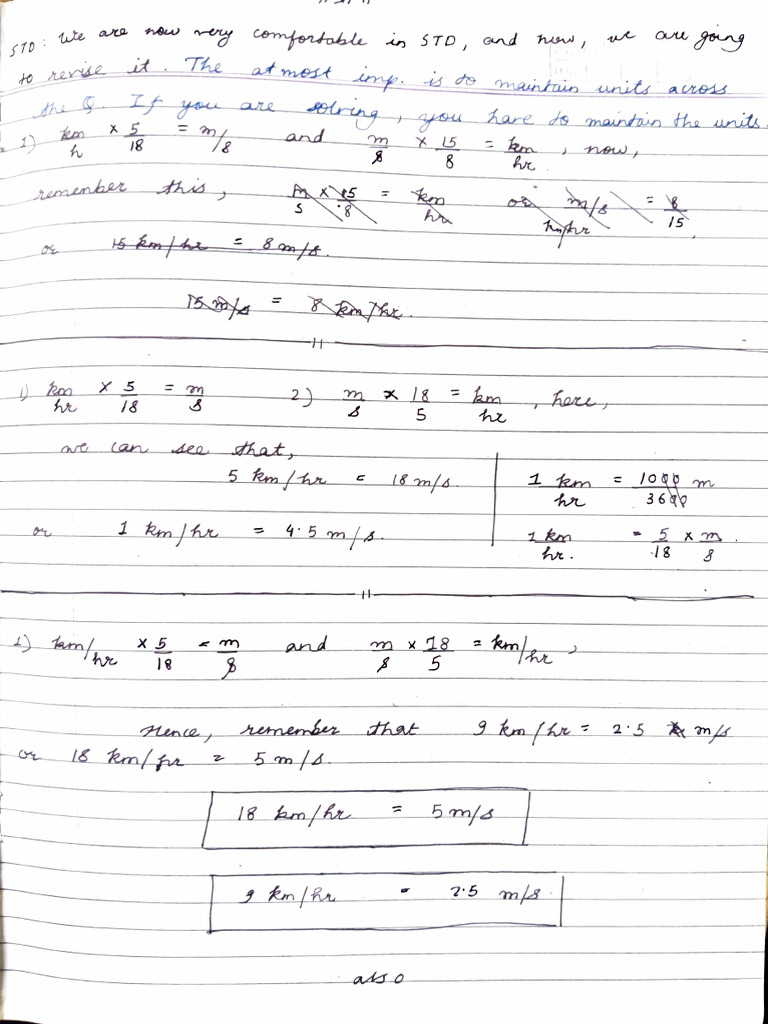 STD: We are now very comfortable in STD, and now, we are going
to revise it. The atmost imp. is to maintain units across
the Q. If you are solving, you have to maintain the units.
1) km/h × 5/18 = m/s and m/s × 15/8 = km/hr, now,
remember this, m/s × 15/8 = km/hr or m/s / km/hr = 8/15,
or 15 km/hr = 8 m/s.
15 m/s = 8 km/hr.
11
1) km/hr × 5/18 = m/s 2) m/s × 18/5 = km/hr, here,
we can see that,
5 km/hr = 18 m/s. 1 km/hr = 1000/3600 m
or 1 km/hr = 4.5 m/s. 1 km/hr. = 5/18 × m/s.
11
1) km/hr × 5/18 = m/s and m/s × 18/5 = km/hr,
Hence, remember that 9 km/hr = 2.5 m/s
or 18 km/hr = 5 m/s.
18 km/hr = 5 m/s
9 km/hr = 2.5 m/s.
also